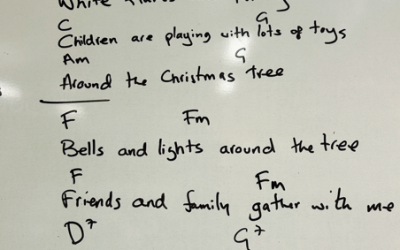 White
C G
Children are playing with lots of toys
Am G
Around the Christmas tree
F Fm
Bells and lights around the tree
F Fm
Friends and family gather with me
D7 G7